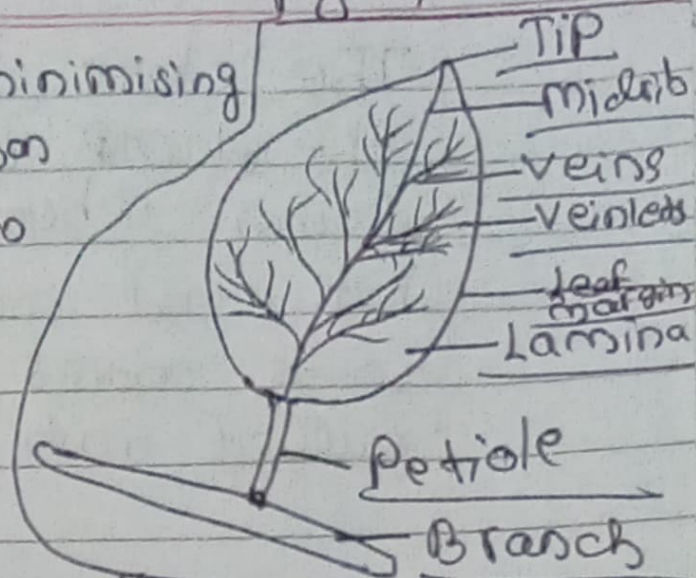 inimising
TiP
midrib
veins
veinlets
Leaf
margin
Lamina
Petiole
Branch